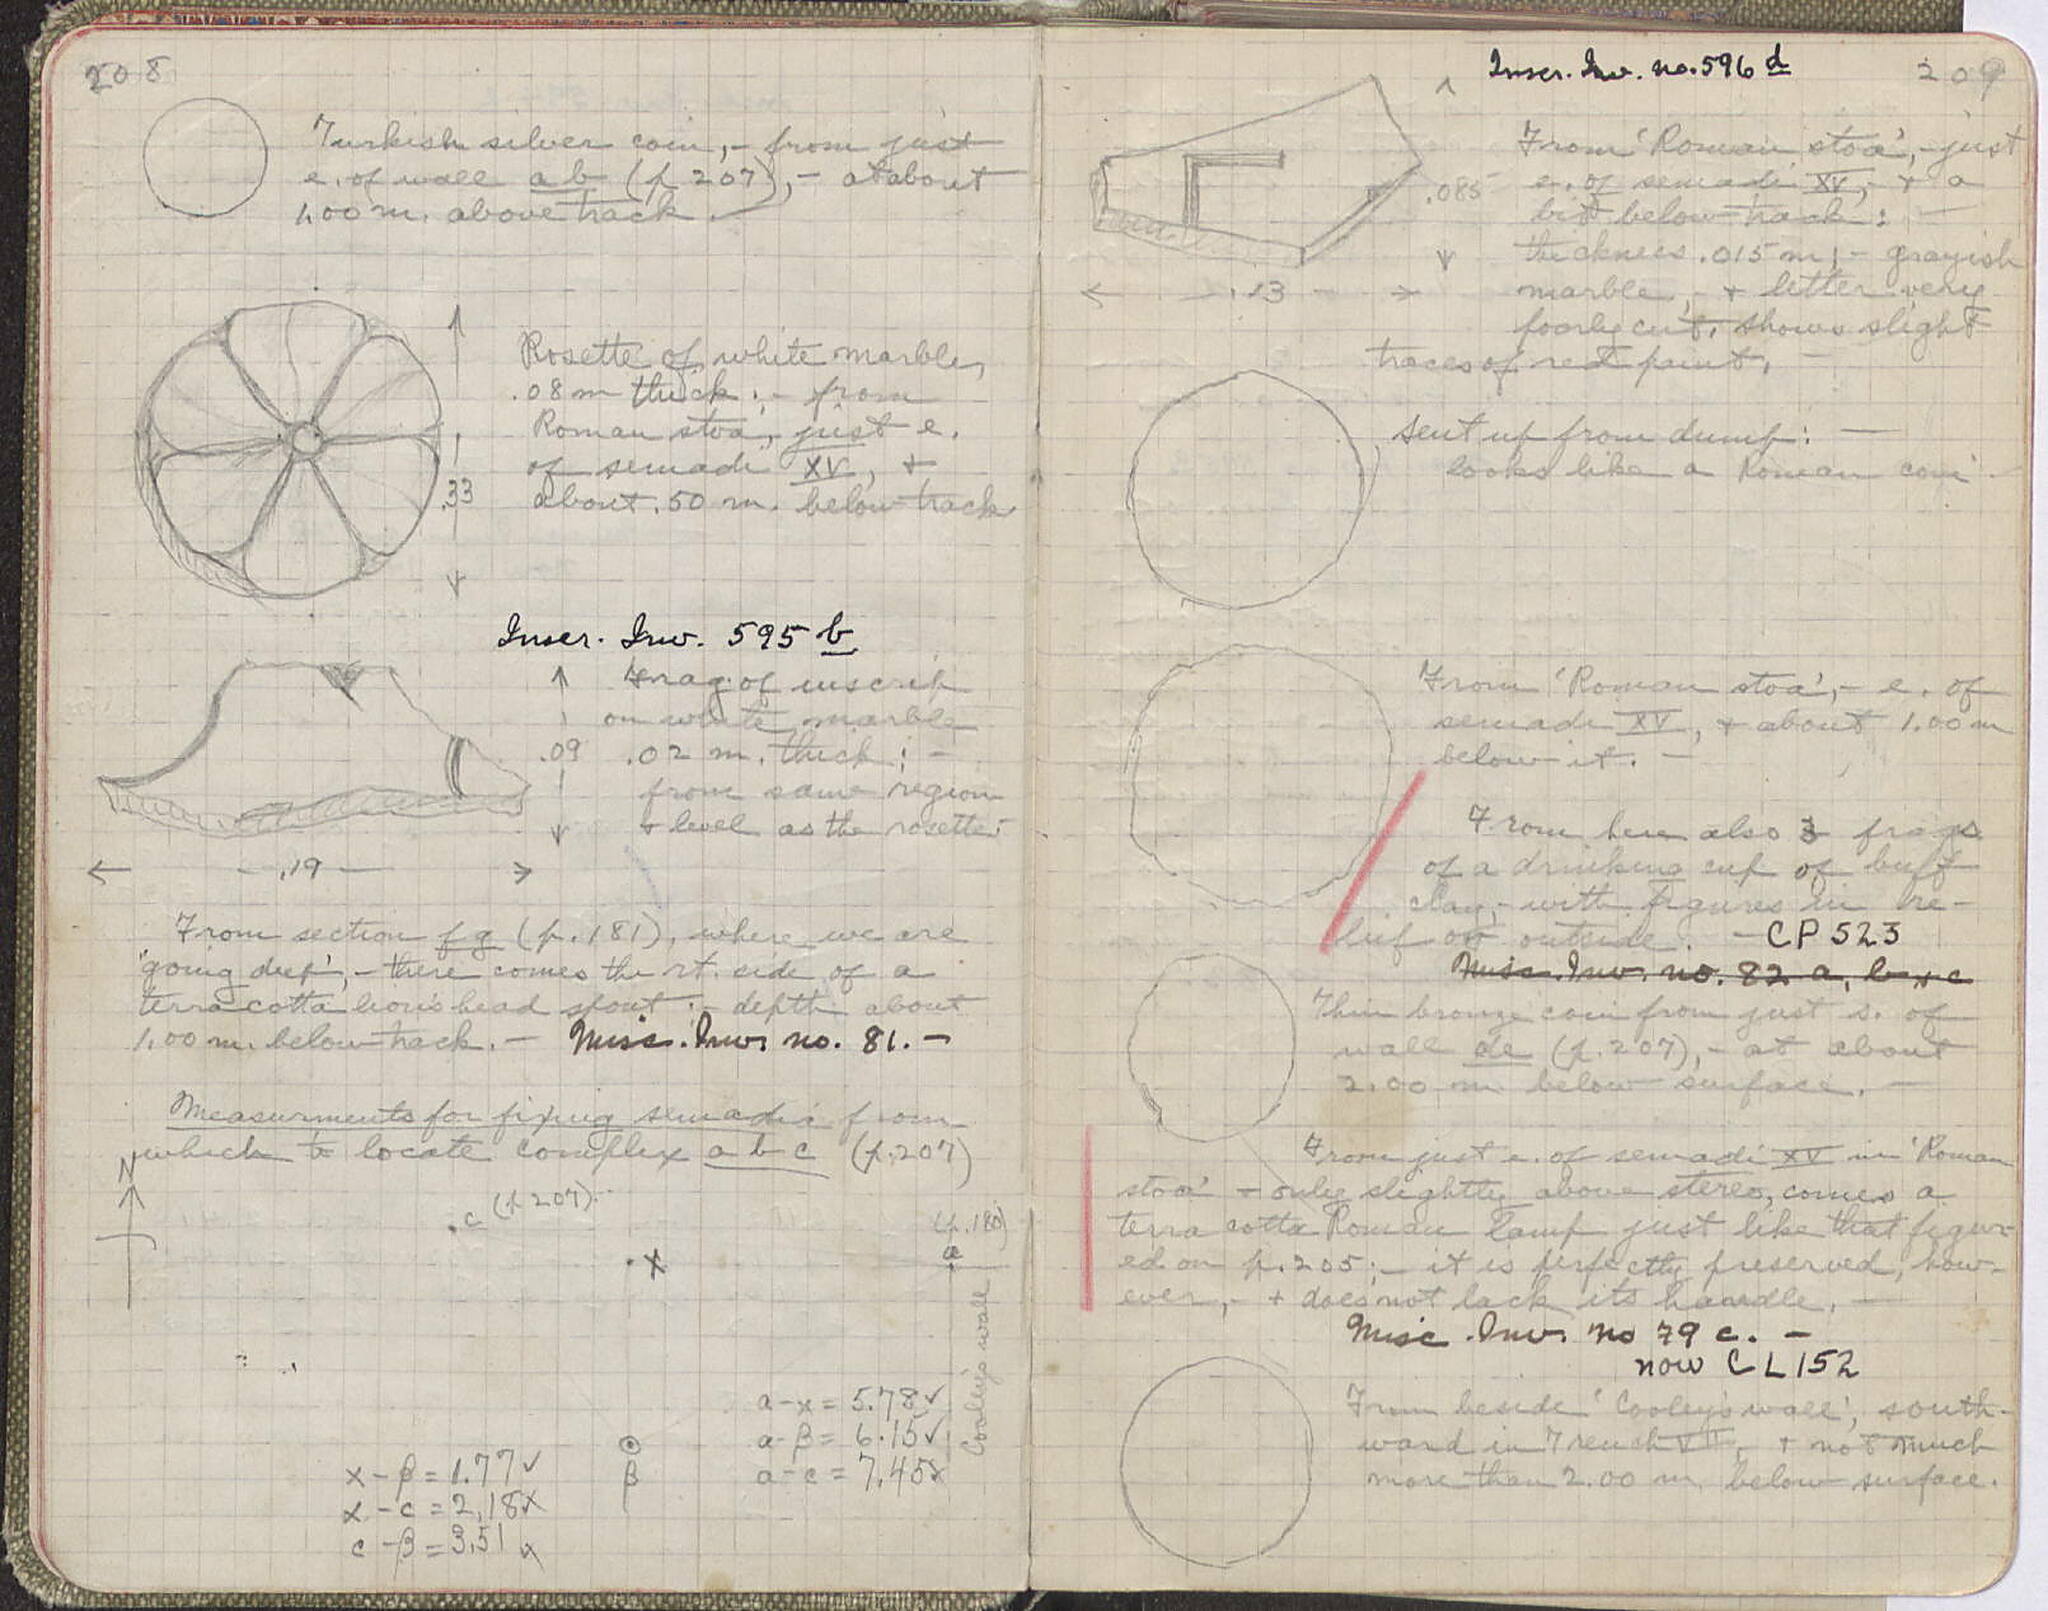 208
Turkish silver coin,- from just
e. of wall a b (p 207),- at about
1.00 m. above track.
Rosette of white marble,
.08 m thick;- from
Roman stoa, just e.
of semadi XV, +
about .50 m. below track
.33
Inscr. Inv. 595 b
Frag. of inscrib
on white marble
.02 m. thick; -
from same region
+ level as the rosette.
.09
.19
From section f g (p. 181), where we are
'going deep',- there comes the rt. side of a
terra cotta lion's head spout;- depth about
1.00 m. below track. - Misc. Inv. no. 81. -
Measurments for fixing semadi from
which to locate complex a b c (p. 207)
N
. c (p 207)
. x
(p. 180)
a
Cooley's wall
a-x = 5.78 ✓
a-β = 6.15 ✓
a-c = 7.45 x
β
x-β = 1.77 ✓
x-c = 2.18 x
c-β = 3.51 x
209
Inscr. Inv. no. 596 d
From 'Roman stoa',- just
e. of semadi XV,- + a
bit below track: -
thickness .015 m;- grayish
marble,- + letter very
poorly cut. Shows slight
traces of red paint. -
.085
.13
Sent up from dump: -
looks like a Roman coin -
From 'Roman stoa',- e. of
semadi XV, + about 1.00 m
below it. -
From here also 3 frags
of a drinking cup of buff
clay,- with figures in re-
lief on outside. - CP 523
Misc. Inv. no. 82 a, b + c
Thin bronze coin from just s. of
wall de (p. 207),- at about
2.00 m. below surface. -
From just e. of semadi XV in 'Roman
stoa' - only slightly above stereo, comes a
terra cotta Roman lamp just like that figur-
ed on p. 205;- it is perfectly preserved, how-
ever,- + does not lack its handle. -
Misc. Inv. no 79 c. -
now CL 152
From beside 'Cooley's wall', south-
ward in Trench + not much
more than 2.00 m. below surface.